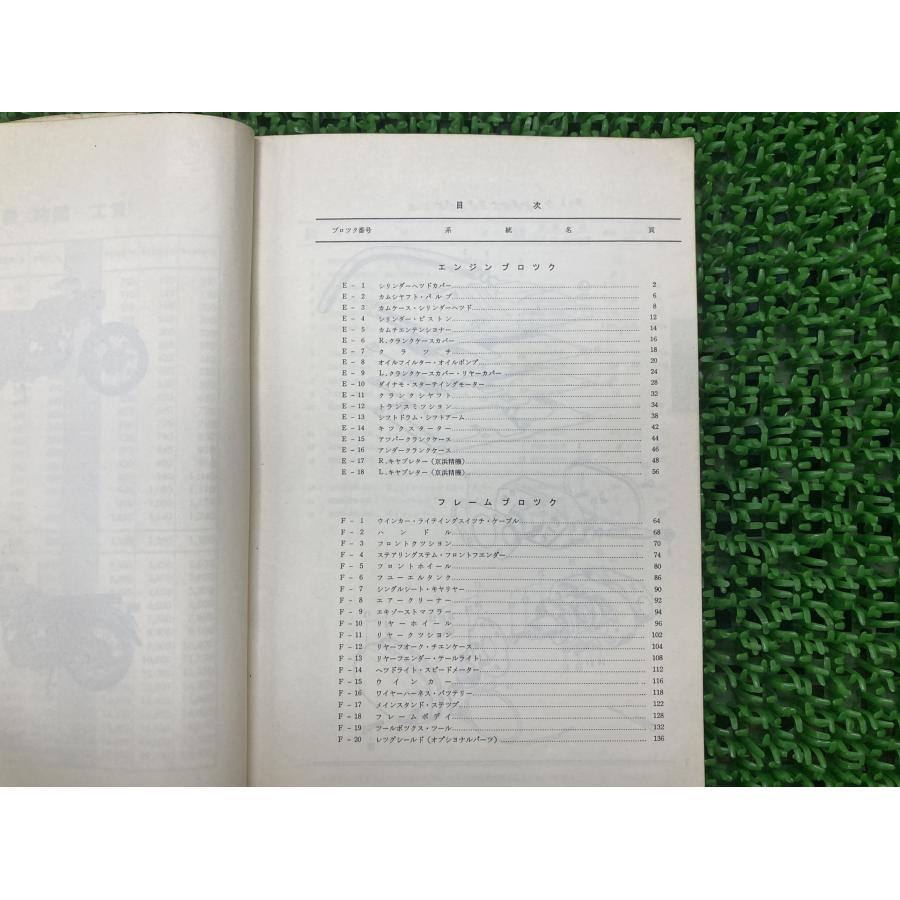 目次
ブロツク番号 系統名 頁
エンジンブロツク
E - 1 シリンダーヘツドカバー 2
E - 2 カムシヤフト・バルブ 6
E - 3 カムケース・シリンダーヘツド 8
E - 4 シリンダー・ピストン 12
E - 5 カムチエンテンシヨナー 14
E - 6 R.クランクケースカバー 16
E - 7 クラツチ 18
E - 8 オイルフイルター・オイルポンプ 20
E - 9 L.クランクケースカバー・リヤーカバー 24
E - 10 ダイナモ・スターテイングモーター 28
E - 11 クランクシヤフト 32
E - 12 トランスミツシヨン 34
E - 13 シフトドラム・シフトアーム 38
E - 14 キツクスターター 42
E - 15 アツパークランクケース 44
E - 16 アンダークランクケース 46
E - 17 R.キヤブレター（京浜精機） 48
E - 18 L.キヤブレター（京浜精機） 56
フレームブロツク
F - 1 ウインカー・ライテイングスイツチ・ケーブル 64
F - 2 ハンドル 68
F - 3 フロントクツシヨン 70
F - 4 ステアリングステム・フロントフエンダー 74
F - 5 フロントホイール 80
F - 6 フユーエルタンク 86
F - 7 シングルシート・キヤリヤー 90
F - 8 エアークリーナー 92
F - 9 エキゾーストマフラー 94
F - 10 リヤーホイール 96
F - 11 リヤークツシヨン 102
F - 12 リヤーフオーク・チエンケース 104
F - 13 リヤーフエンダー・テールライト 108
F - 14 ヘツドライト・スピードメーター 112
F - 15 ウインカー 116
F - 16 ワイヤーハーネス・バツテリー 118
F - 17 メインスタンド・ステツプ 122
F - 18 フレームボデイ 128
F - 19 ツールボツクス・ツール 132
F - 20 レツグシールド（オプシヨナルパーツ） 136